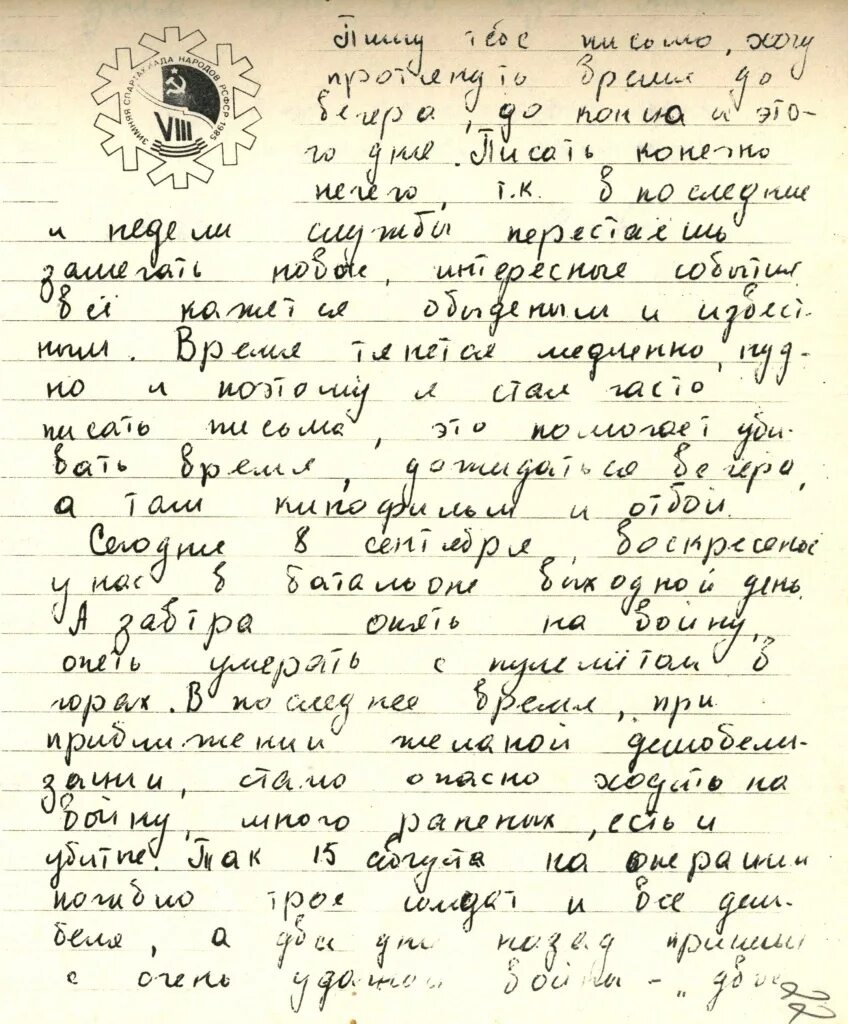 ЗИМНЯЯ СПАРТАКИАДА НАРОДОВ РСФСР 1985
VIII
Пишу тебе письмо, хочу
протянуть время до
вечера, до конца и это-
го дня. Писать конечно
нечего, т.к. в последние
и недели службы перестаёшь
замечать новое, интересные события
всё кажется обыденым и извест-
ным. Время тянется медленно, нуд-
но и поэтому я стал часто
писать письма, это помогает уби-
вать время, дожидаться вечера,
а там кинофильм и отбой.
Сегодня 8 сентября, воскресенье
у нас в батальоне выходной день.
А завтра опять на войну,
опять умерать с пулемётом в
горах. В последнее время, при
приближении желаной демобели-
зации, стало опасно ходить на
войну, много раненых, есть и
убитые. Так 15 августа на операции
погибло трое солдат и все дем-
беля, а два дня назад пришли
с очень удачной войны - „двое